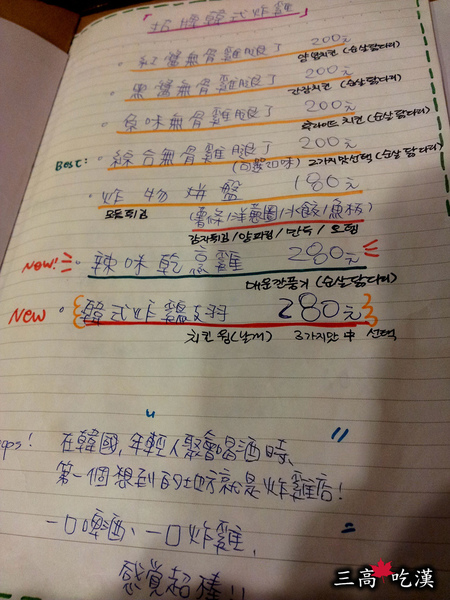 「招牌韓式炸雞」
・紅醬無骨雞腿丁 200元
양념치킨 (순살닭다리)
・黑醬無骨雞腿丁 200元
간장치킨 (순살닭다리)
・原味無骨雞腿丁 200元
후라이드 치킨 (순살닭다리)
Best: ・綜合無骨雞腿丁 200元
(可選2口味) 2가지맛선택 (순살닭다리)
・炸物拼盤 180元
모듬튀김 (薯條/洋蔥圈/水餃/魚板)
감자튀김/양파링/만두/오뎅
New! ・辣味乾烹雞 280元
매운깐풍기 (순살닭다리)
New ・韓式炸雞翅 280元
치킨 윙(날개) 3가지맛 中 선택
ps! 在韓國,年輕人聚會喝酒時、
第一個想到的地方就是炸雞店!
一口啤酒、一口炸雞,
感覺超棒!!
三高吃漢